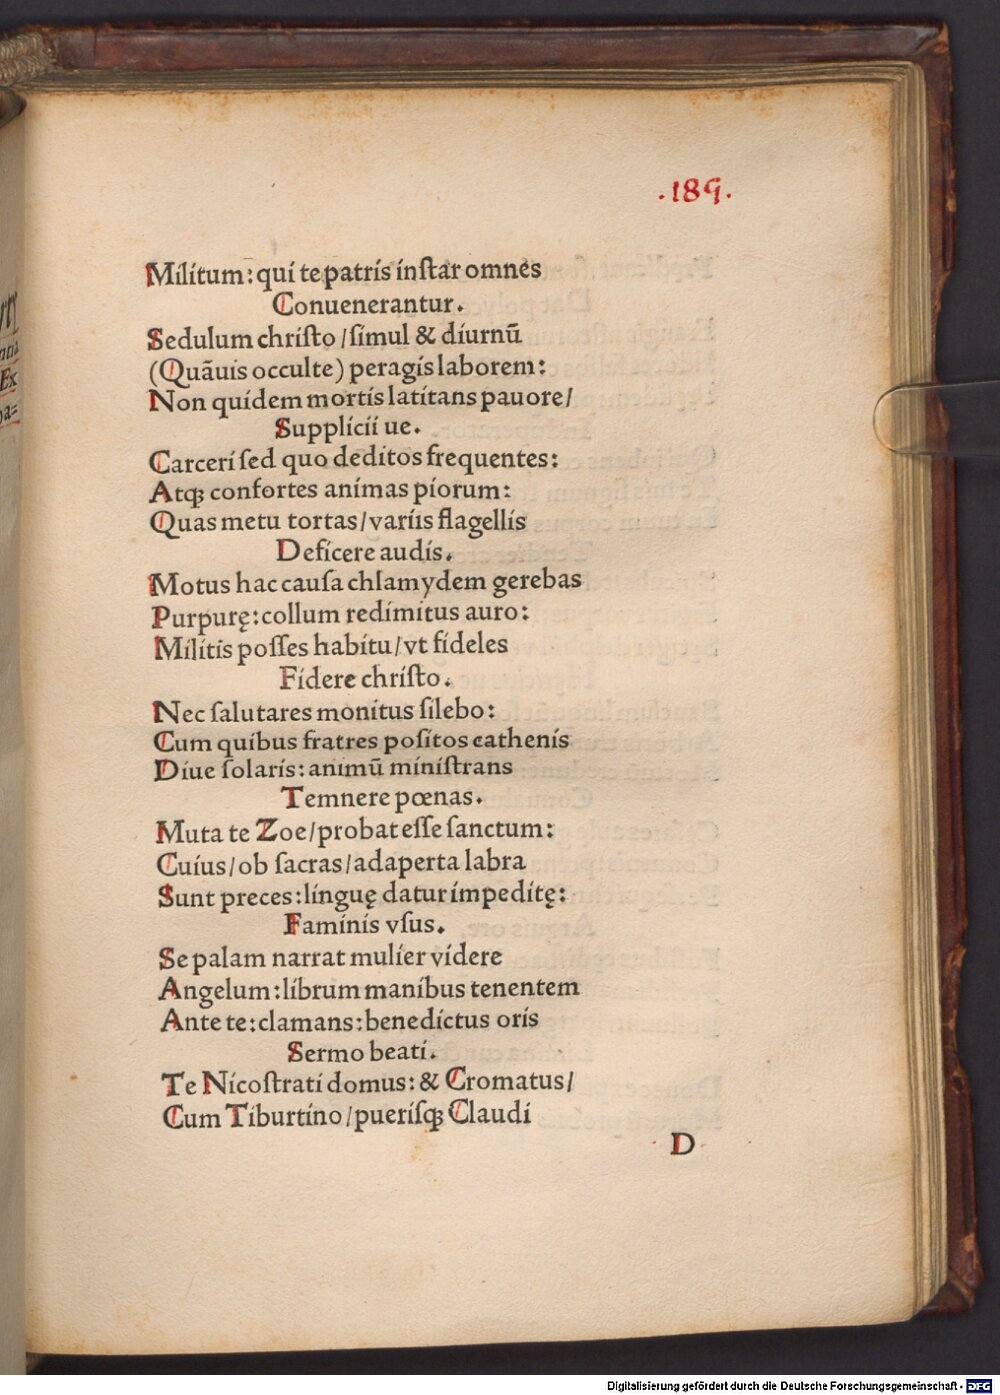 .189.
Militum: qui te patris inſtar omnes
Conuenerantur.
Sedulum chriſto / ſimul & diurnū
(Quāuis occulte) peragis laborem:
Non quidem mortis latitans pauore/
Supplicii ue.
Carceri ſed quo deditos frequentes:
Atqꝫ confortes animas piorum:
Quas metu tortas / variis flagellis
Deficere audis.
Motus hac cauſa chlamydem gerebas
Purpurę: collum redimitus auro:
Militis poſſes habitu / vt fideles
Fidere chriſto.
Nec ſalutares monitus ſilebo:
Cum quibus fratres poſitos cathenis
Diue ſolaris: animū miniſtrans
Temnere pœnas.
Muta te Zoe / probat eſſe ſanctum:
Cuius / ob ſacras / adaperta labra
Sunt preces: linguę datur impeditę:
Faminis vſus.
Se palam narrat mulier videre
Angelum: librum manibus tenentem
Ante te: clamans: benedictus oris
Sermo beati.
Te Nicoſtrati domus: & Cromatus/
Cum Tiburtino / pueriſqꝫ Claudi
D
Digitalisierung gefördert durch die Deutsche Forschungsgemeinschaft - DFG